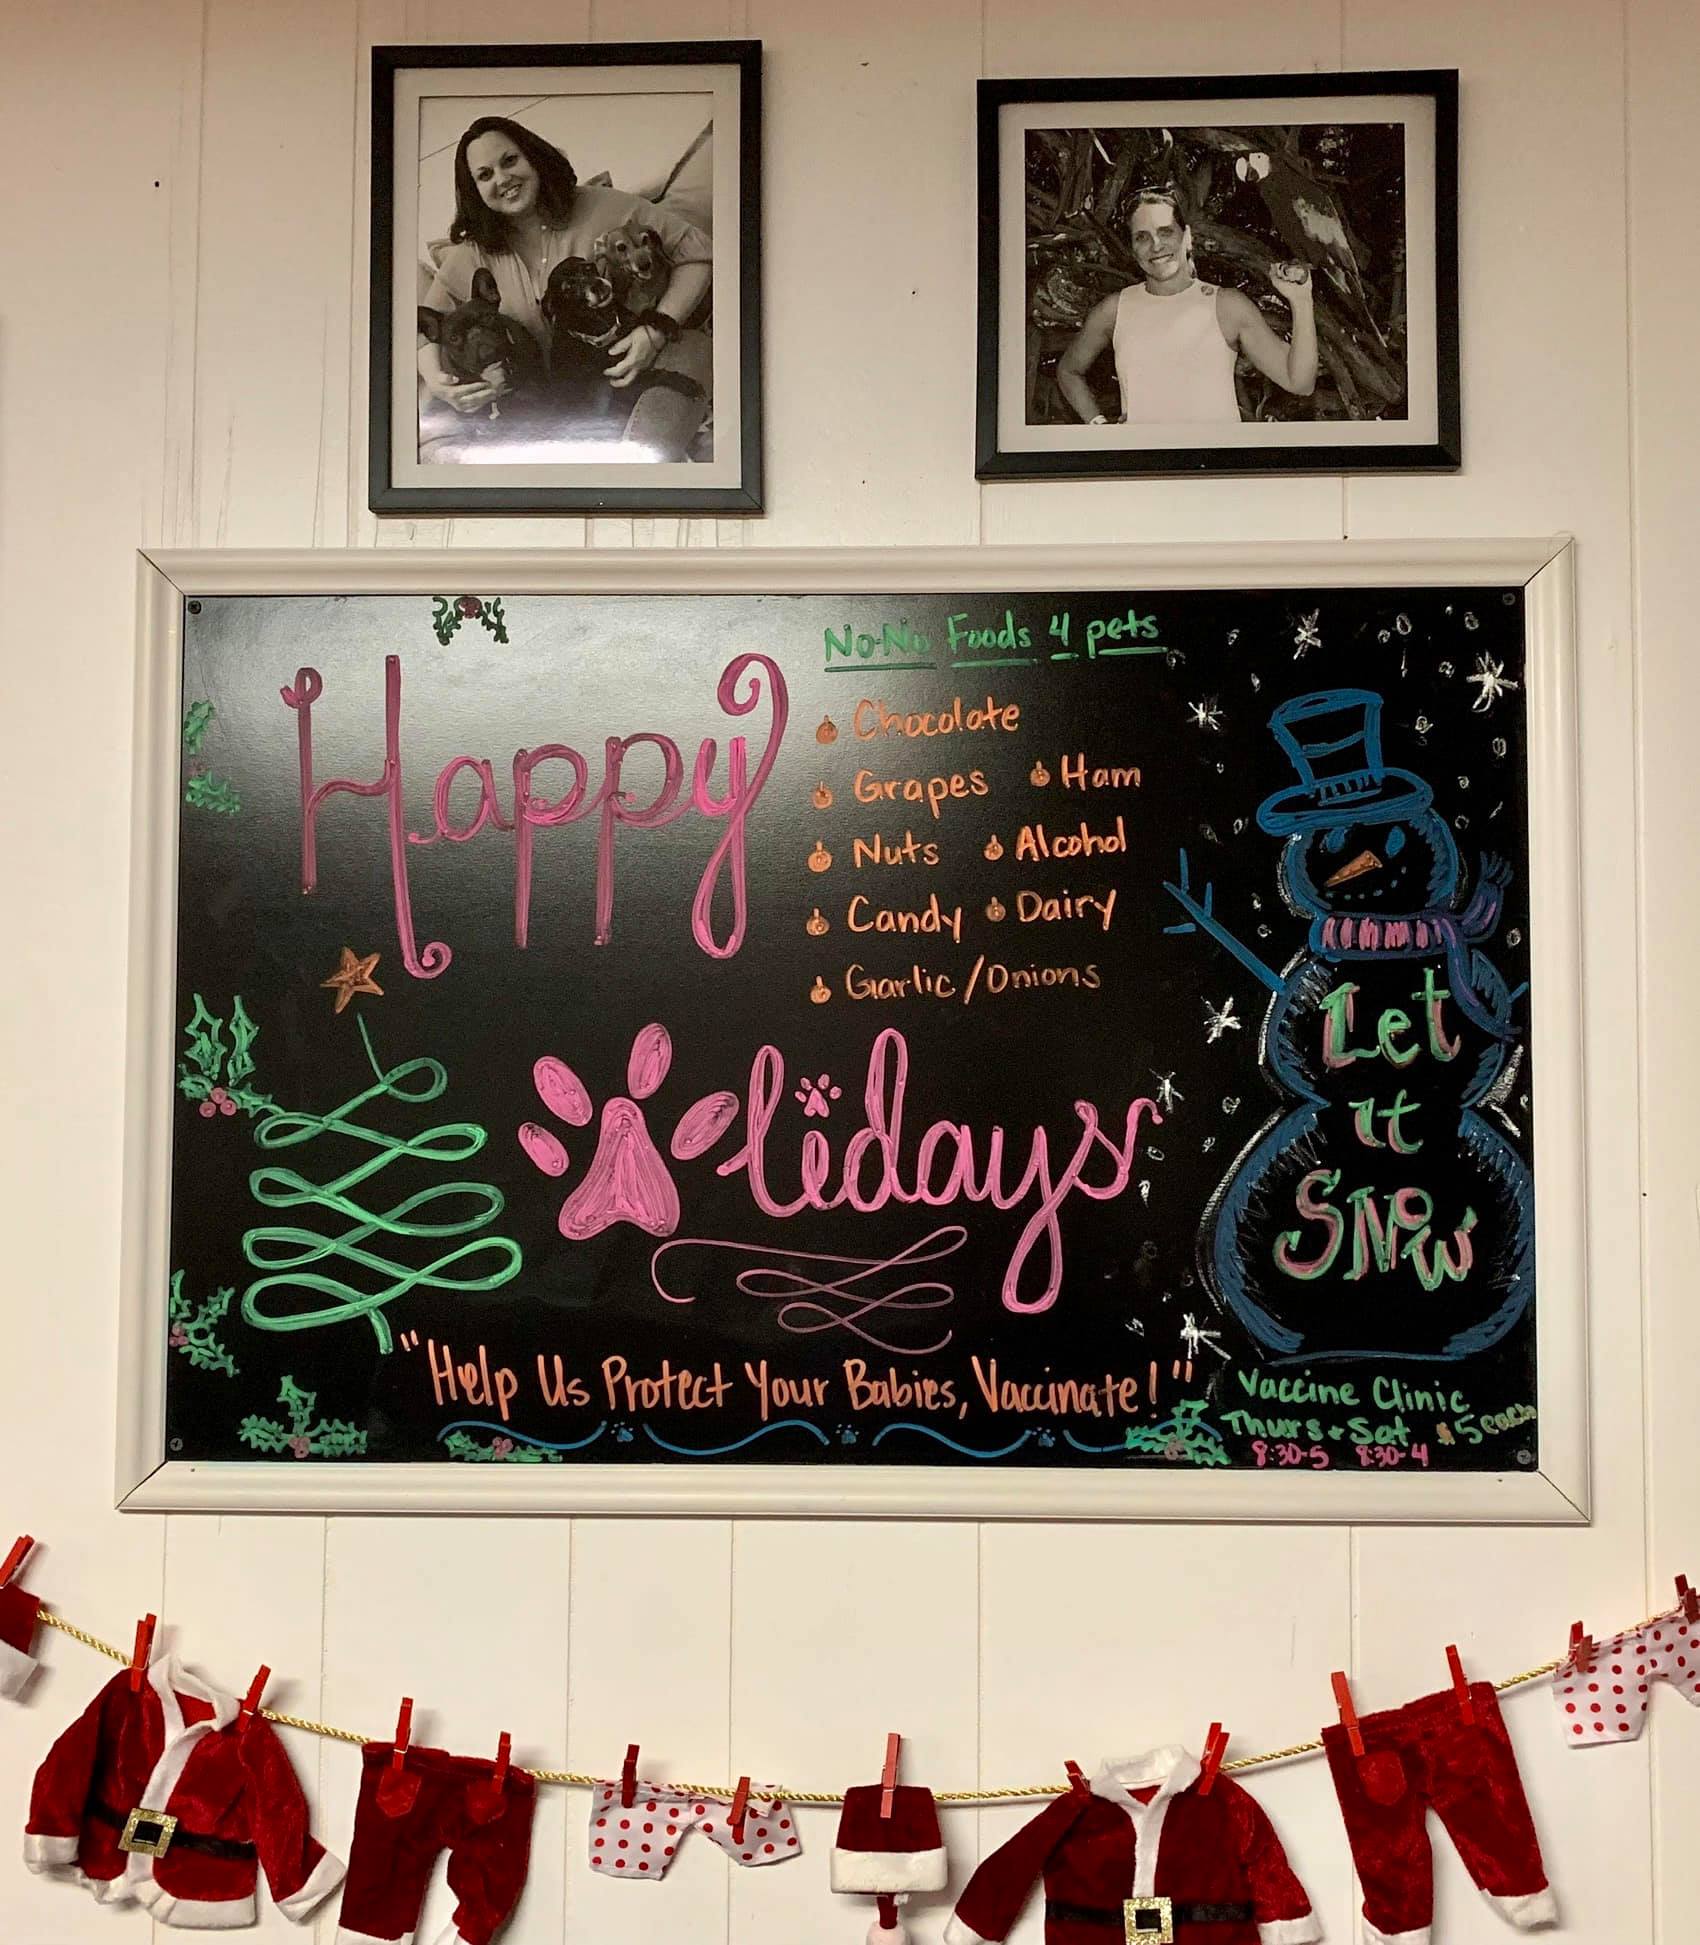 Happy
No-No Foods 4 pets
Chocolate
Grapes Ham
Nuts Alcohol
Candy Dairy
Garlic/Onions
lidays
Let
it
SNOW
"Help Us Protect Your Babies, Vaccinate!"
Vaccine Clinic
Thurs + Sat $5 each
8:30-5 8:30-4